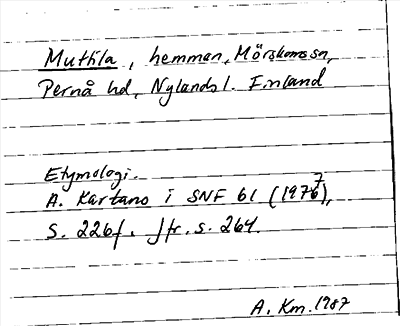 Muttila, hemman, Mörskoms sn,
Pernå hd, Nylands l. Finland
Etymologi.
A. Kartano i SNF 61 (1977),
s. 226f. Jfr. s. 264.
A. Km. 1987